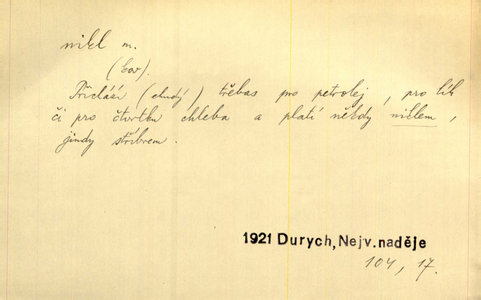 nikl m.
(kov).
Přichází (chudý) třebas pro petrolej, pro lék
či pro čtvrtku chleba a platí někdy niklem,
jindy stříbrem.
1921 Durych, Nejv. naděje
104, 17.